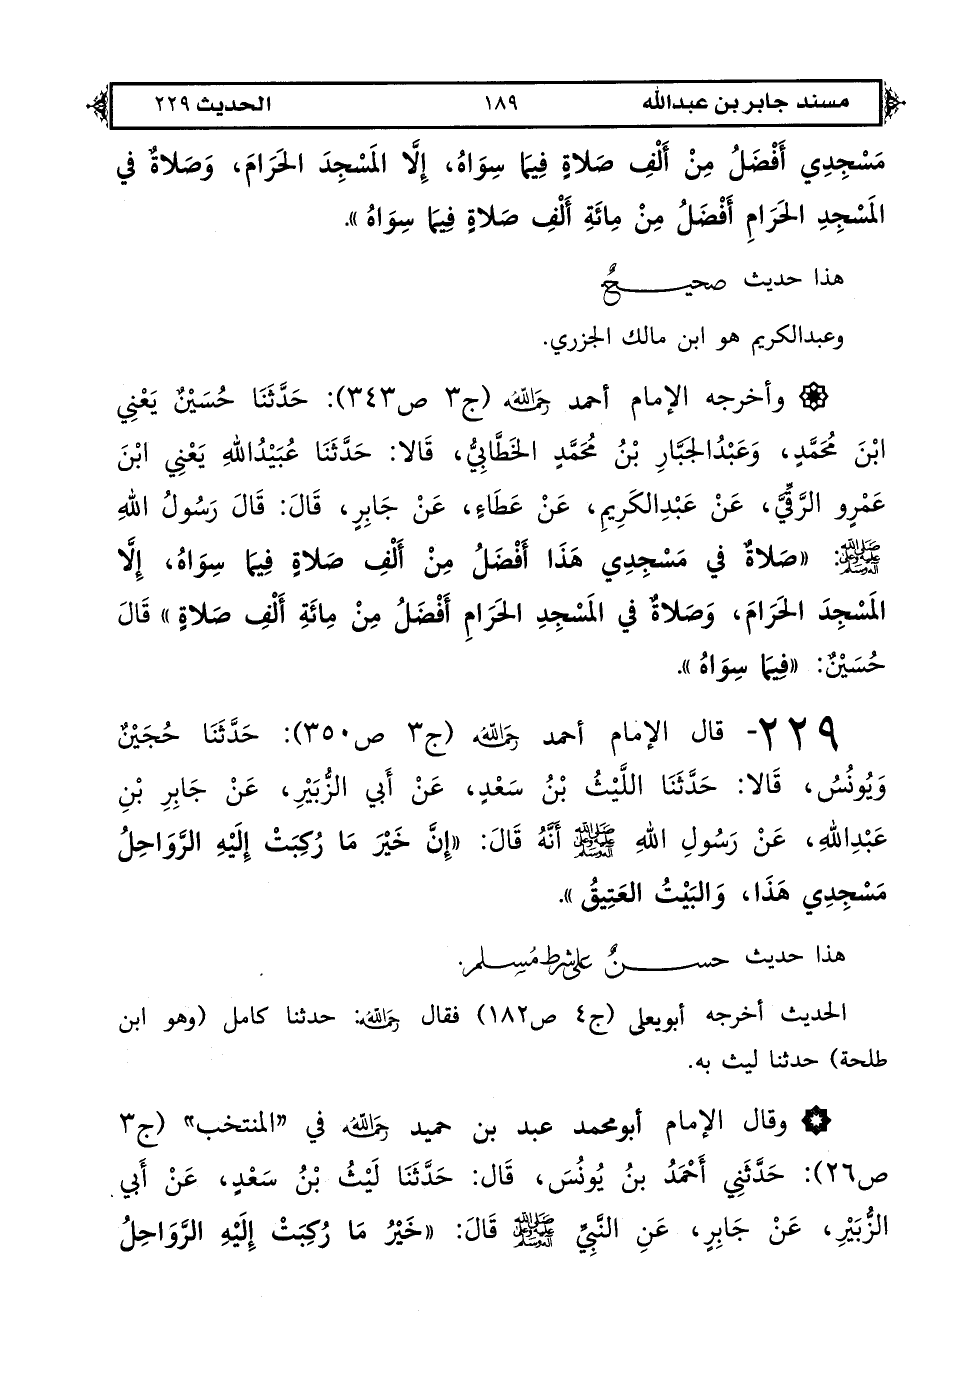 مسند جابر بن عبدالله ١٨٩ الحديث ٢٢٩
مَسْجِدِي أَفْضَلُ مِنْ أَلْفِ صَلَاةٍ فِيمَا سِوَاهُ، إِلَّا المَسْجِدَ الحَرَامَ، وَصَلاةٌ في
المَسْجِدِ الحَرَامِ أَفْضَلُ مِنْ مِائَةِ أَلْفِ صَلاةٍ فِيمَا سِوَاهُ».
هذا حديث صحيحٌ
وعبدالكريم هو ابن مالك الجزري.
وأخرجه الإمام أحمد رحمه الله (ج٣ ص٣٤٣): حَدَّثَنَا حُسَيْنٌ يَعْنِي
ابْنَ مُحَمَّدٍ، وَعَبْدُالجَبَّارِ بْنُ مُحَمَّدٍ الخَطَّابِيُّ، قَالا: حَدَّثَنَا عُبَيْدُاللهِ يَعْنِي ابْنَ
عَمْرٍو الرَّقِّيَّ، عَنْ عَبْدِالكَرِيمِ، عَنْ عَطَاءٍ، عَنْ جَابِرٍ، قَالَ: قَالَ رَسُولُ اللهِ
ﷺ: «صَلاةٌ في مَسْجِدِي هَذَا أَفْضَلُ مِنْ أَلْفِ صَلاةٍ فِيمَا سِوَاهُ، إِلَّا
المَسْجِدَ الحَرَامَ، وَصَلاةٌ في المَسْجِدِ الحَرَامِ أَفْضَلُ مِنْ مِائَةِ أَلْفِ صَلاةٍ» قَالَ
حُسَيْنٌ: «فِيمَا سِوَاهُ».
٢٢٩- قال الإمام أحمد رحمه الله (ج٣ ص٣٥٠): حَدَّثَنَا حُجَيْنٌ
وَيُونُسُ، قَالا: حَدَّثَنَا اللَّيْثُ بْنُ سَعْدٍ، عَنْ أَبي الزُّبَيْرِ، عَنْ جَابِرِ بْنِ
عَبْدِاللهِ، عَنْ رَسُولِ اللهِ ﷺ أَنَّهُ قَالَ: «إِنَّ خَيْرَ مَا رُكِبَتْ إِلَيْهِ الرَّوَاحِلُ
مَسْجِدِي هَذَا، وَالبَيْتُ العَتِيقُ».
هذا حديث حسنٌ على شرط مُسلم.
الحديث أخرجه أبويعلى (ج٤ ص١٨٢) فقال رحمه الله: حدثنا كامل (وهو ابن
طلحة) حدثنا ليث به.
وقال الإمام أبومحمد عبد بن حميد رحمه الله في "المنتخب" (ج٣
ص٢٦): حَدَّثَنِي أَحْمَدُ بنُ يُونُسَ، قَال: حَدَّثَنَا لَيْثُ بْنُ سَعْدٍ، عَنْ أَبي
الزُّبَيْرِ، عَنْ جَابِرٍ، عَنِ النَّبِيِّ ﷺ قَالَ: «خَيْرُ مَا رُكِبَتْ إِلَيْهِ الرَّوَاحِلُ